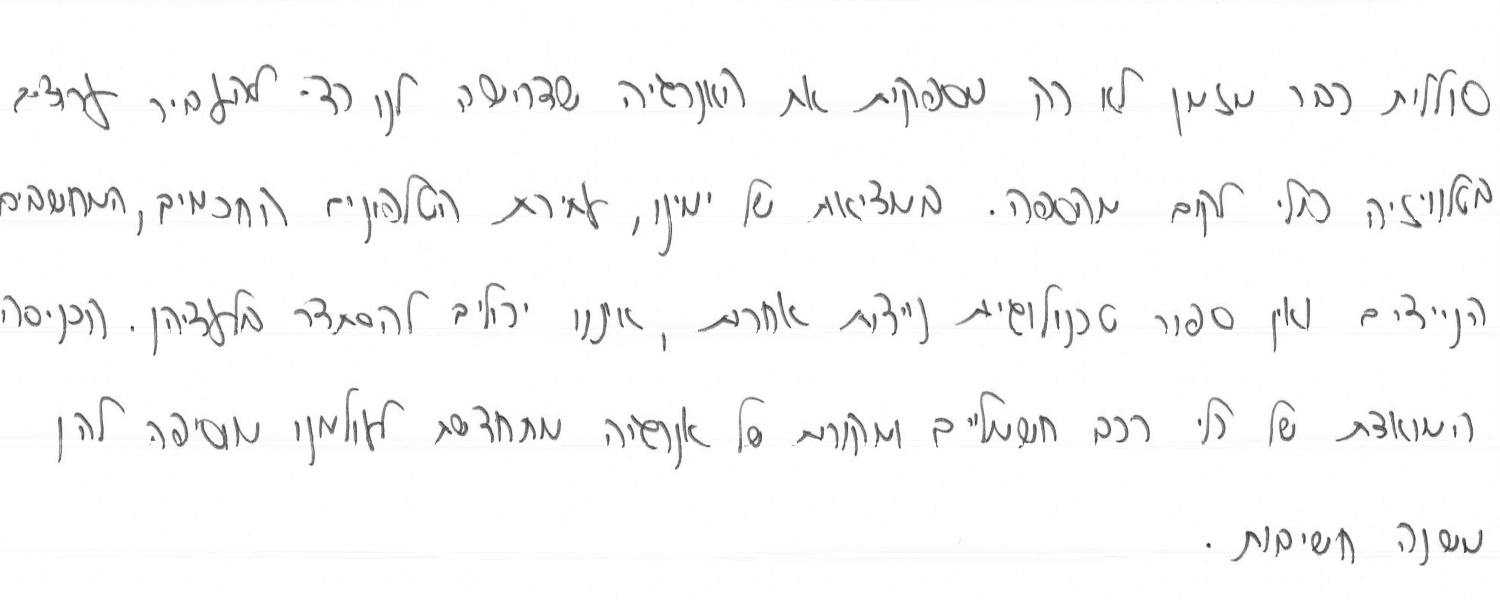 סוללות כבר מזמן לא רק מספקות את האנרגיה שדרושה לנו כדי להעביר ערוצים
בטלוויזיה בלי לקום מהספה. במציאות של ימינו, עתירת הטלפונים החכמים, המחשבים
הניידים ואין ספור טכנולוגיות ניידות אחרות, איננו יכולים להסתדר בלעדיהן. הכניסה
המואצת של כלי רכב חשמליים ומקורות של אנרגיה מתחדשת לעולמנו מוסיפה להן
משנה חשיבות.